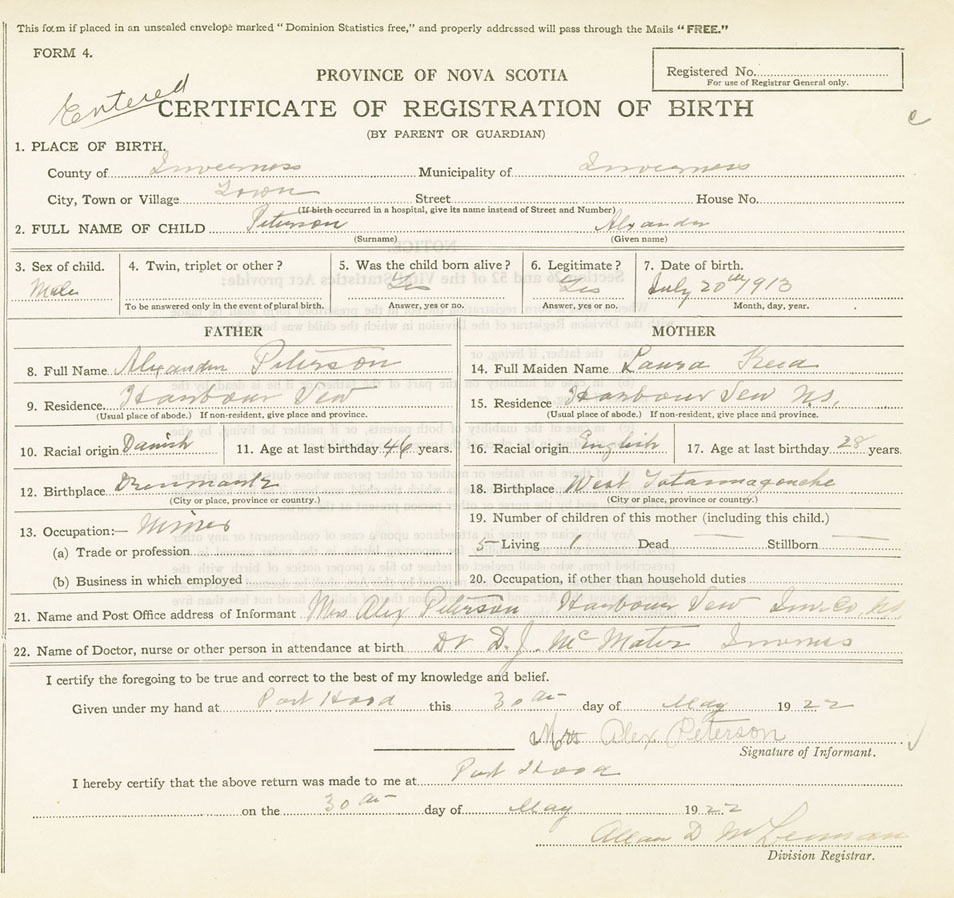 This form if placed in an unsealed envelope marked "Dominion Statistics free," and properly addressed will pass through the Mails "FREE."
FORM 4.
PROVINCE OF NOVA SCOTIA
Registered No.
For use of Registrar General only.
Entered
CERTIFICATE OF REGISTRATION OF BIRTH
(BY PARENT OR GUARDIAN)
1. PLACE OF BIRTH.
County of Inverness Municipality of Inverness
City, Town or Village Town Street House No.
(If birth occurred in a hospital, give its name instead of Street and Number)
2. FULL NAME OF CHILD Peterson Alexander
(Surname) (Given name)
3. Sex of child. 4. Twin, triplet or other? 5. Was the child born alive? 6. Legitimate? 7. Date of birth.
Male Yes Yes July 20th 1913
To be answered only in the event of plural birth. Answer, yes or no. Answer, yes or no. Month, day, year.
FATHER MOTHER
8. Full Name Alexander Peterson 14. Full Maiden Name Laura
9. Residence Harbour Vew 15. Residence Harbour Vew N.S.
(Usual place of abode.) If non-resident, give place and province. (Usual place of abode.) If non-resident, give place and province.
10. Racial origin Danish 11. Age at last birthday 46 years. 16. Racial origin English 17. Age at last birthday 28 years.
12. Birthplace 18. Birthplace West
(City or place, province or country.) (City or place, province or country.)
13. Occupation:— Miner 19. Number of children of this mother (including this child.)
(a) Trade or profession 5 Living 1 Dead — Stillborn —
(b) Business in which employed 20. Occupation, if other than household duties
21. Name and Post Office address of Informant Mrs Alex Peterson Harbour Vew Inv. Co. N.S.
22. Name of Doctor, nurse or other person in attendance at birth Dr D. J. Inverness
I certify the foregoing to be true and correct to the best of my knowledge and belief.
Given under my hand at Port Hood this 30th day of May 1922
Mrs Alex Peterson
Signature of Informant.
I hereby certify that the above return was made to me at Port Hood
on the 30th day of May 1922
Allan D McLennan
Division Registrar.